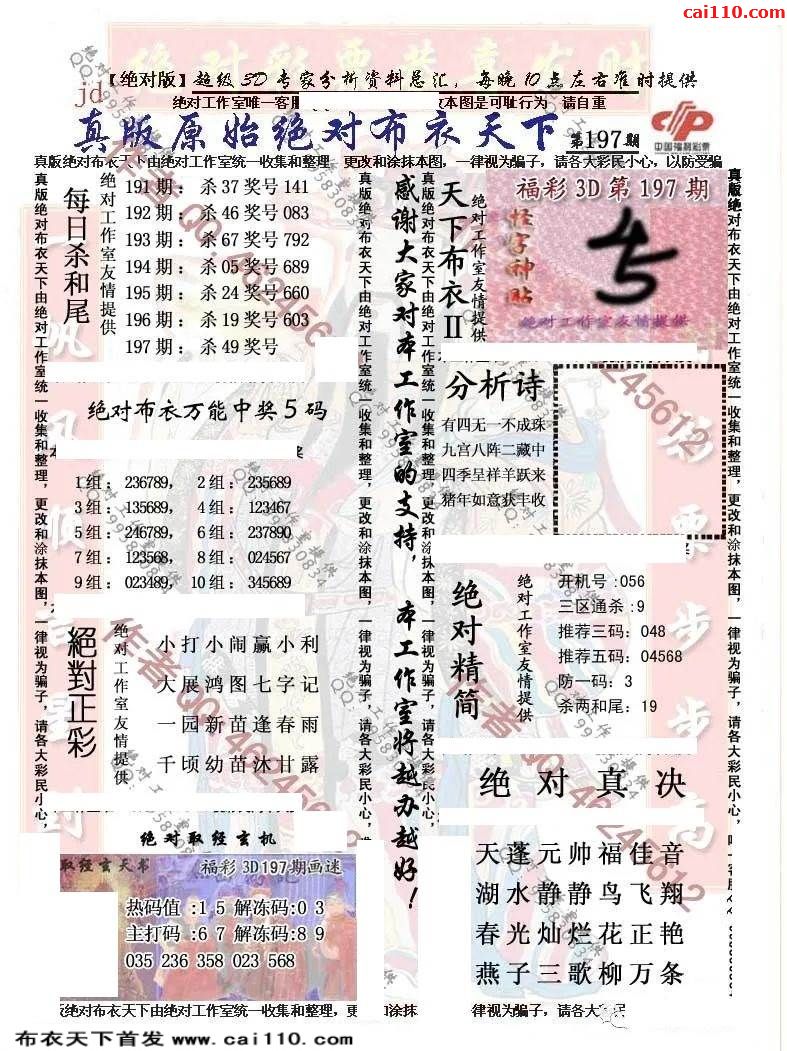 cai110.com
【绝对版】超级3D专家分析资料总汇，每晚10点左右准时提供
jd
绝对工作室唯一客服
本图是可耻行为 请自重
真版原始绝对布衣天下
第197期
中国福利彩票
真版绝对布衣天下由绝对工作室统一收集和整理 更改和涂抹本图，一律视为骗子，请各大彩民小心，以防受骗
每日杀和尾
绝对工作室友情提供
191期：杀37奖号141
192期：杀46奖号083
193期：杀67奖号792
194期：杀05奖号689
195期：杀24奖号660
196期：杀19奖号603
197期：杀49奖号
真版绝对布衣天下由绝对工作室统一收集和整理，更改和涂抹本图，一律视为骗子，请各大彩民小心，
感谢大家对本工作室的支持，本工作室将越办越好！
天下布衣II
绝对工作室友情提供
福彩3D第197期
怪字神贴
绝对工作室友情提供
绝对布衣万能中奖5码
1组：236789， 2组：235689
3组：135689， 4组：123467
5组：246789， 6组：237890
7组：123568， 8组：024567
9组：023489， 10组：345689
分析诗
有四无一不成珠
九宫八阵二藏中
四季呈祥羊跃来
猪年如意获丰收
絕對正彩
绝对工作室友情提供
小打小闹赢小利
大展鸿图七字记
一园新苗逢春雨
千顷幼苗沐甘露
绝对精简
绝对工作室友情提供
开机号:056
三区通杀:9
推荐三码：048
推荐五码：04568
防一码：3
杀两和尾：19
绝对真决
天蓬元帅福佳音
湖水静静鸟飞翔
春光灿烂花正艳
燕子三歌柳万条
绝对取经玄机
取经玄天书
福彩3D197期画迷
热码值:15解冻码:03
主打码:67解冻码:89
035 236 358 023 568
版绝对布衣天下由绝对工作室统一收集和整理，更
和涂抹
律视为骗子，请各大
民
布衣天下首发 www.cai110.com